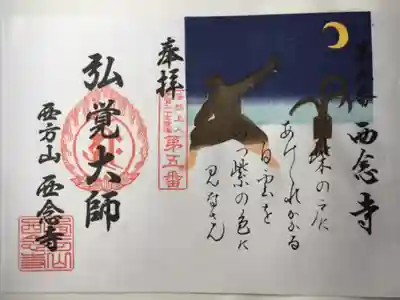 西念寺
柴の戸に
あけくれかかる
白雲を
いつ紫の色に
見なさん
奉拝
第五番
弘覚大師
西方山 西念寺